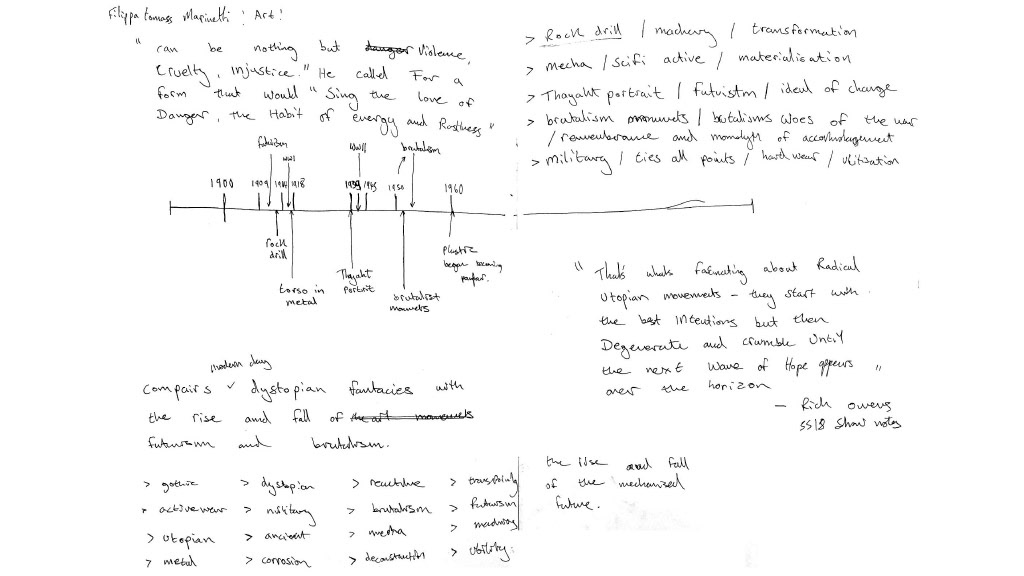 Filippa tomass Marinetti : Art !
" can be nothing but danger Violence,
Cruelty, injustice." He called For a
form that would "Sing the love of
Danger, the Habit of energy and Rostless"
> Rock drill / machiery / transformation
> mecha / scifi active / materialisation
> Thayaht portrait / futuristm / ideal of change
> brutalism / brutalisms woes of the war
/ rememberance and of
> military / ties all points / hard wear / utilisation
futurism
WWI
WWII
brutalism
1900
1909
1914
1918
1939
1945
1950
1960
rock
drill
torso in
metal
Thayaht
portrait
brutalist
Plastic
began becoming
" That's whats about Radical
Utopian movements – they start with
the best Intentions but then
Degenerate and crumble Until
the next Wave of Hope appears "
over the horizon
– Rick Owens
SS18 Show notes
modern day
Compairs ✓ dystopian fantacies with
the rise and fall of the art movements
futurism and brutalism.
> gothic
> activewear
> utopian
> metal
> dystopian
> military
> ancient
> corrosion
> brutalism
> mecha
> deconstruction
> futurism
> utility
the rise and fall
of the mechanised
future.